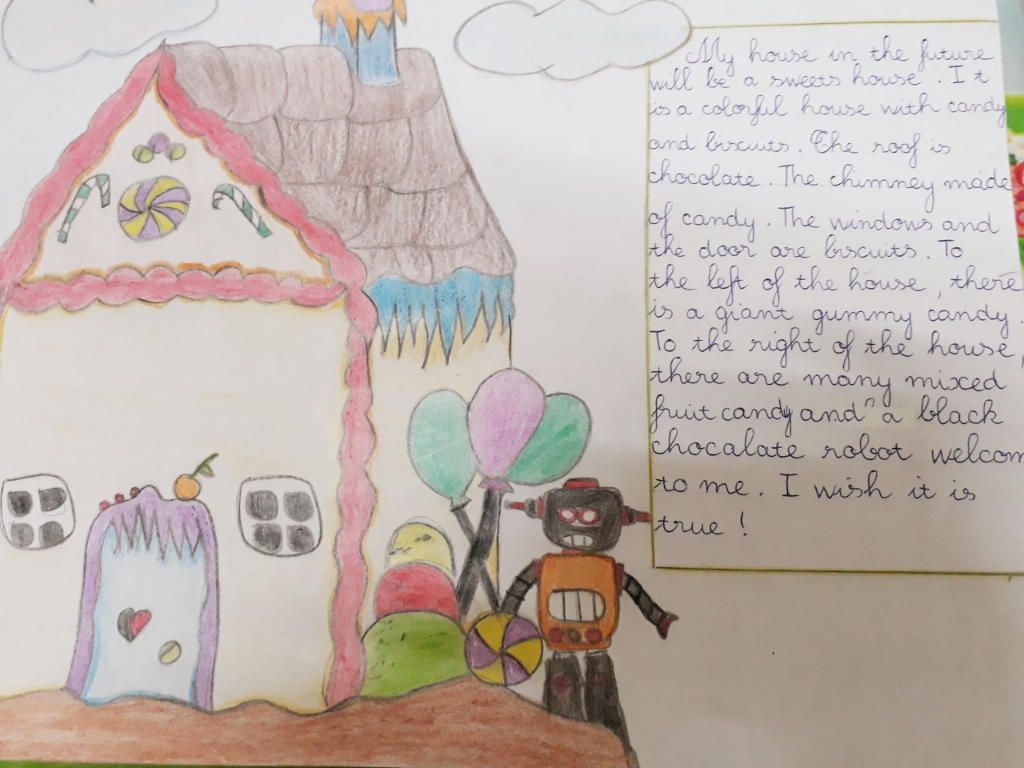 My house in the future
will be a sweets house. It
is a colorful house with candy
and biscuits. The roof is
chocolate. The chimney made
of candy. The windows and
the door are biscuits. To
the left of the house, there
is a giant gummy candy.
To the right of the house,
there are many mixed
fruit candy and " a black
chocalate robot welcom
to me. I wish it is
true!